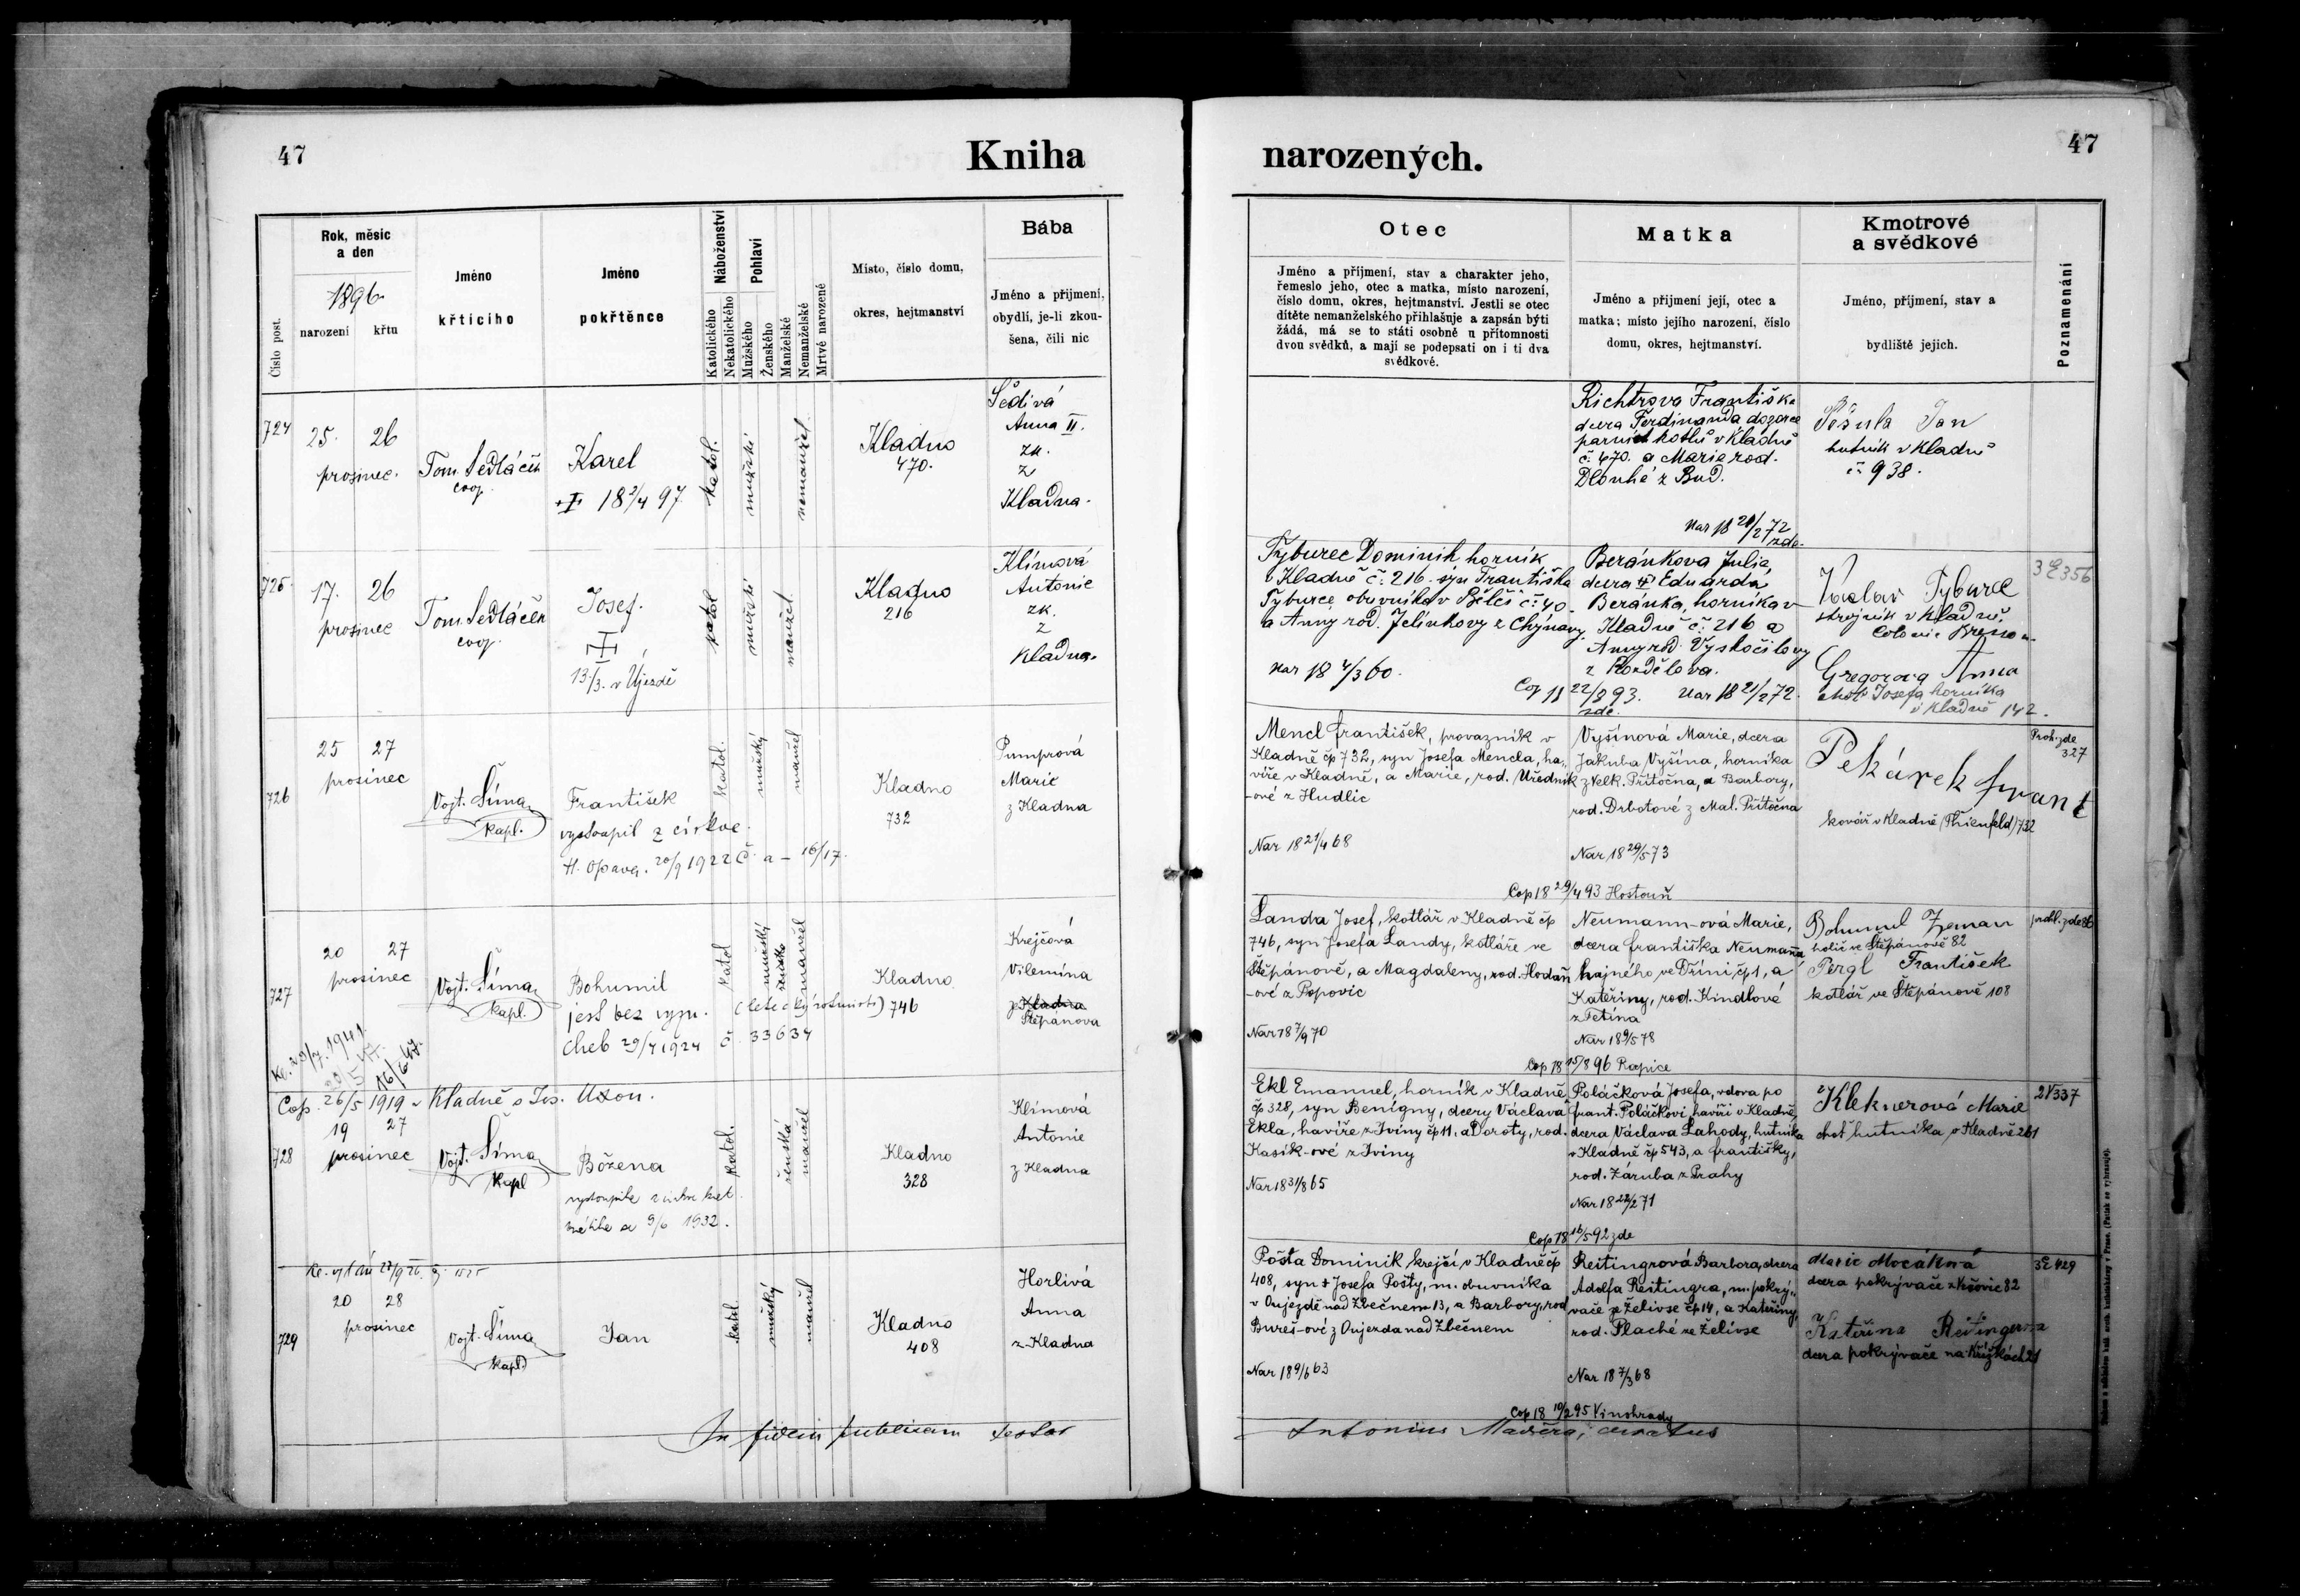 47
Kniha
narozených.
47
Číslo post.
Rok, měsíc
a den
1896.
narození
křtu
Jméno
křtícího
Jméno
pokřtěnce
Náboženství
Katolického
Nekatolického
Pohlaví
Mužského
Ženského
Manželské
Nemanželské
Mrtvé narozené
Místo, číslo domu,
okres, hejtmanství
Bába
Jméno a příjmení,
obydlí, je-li zkou-
šena, čili nic
Otec
Jméno a příjmení, stav a charakter jeho,
řemeslo jeho, otec a matka, místo narození,
číslo domu, okres, hejtmanství. Jestli se otec
dítěte nemanželského přihlašuje a zapsán býti
žádá, má se to státi osobně u přítomnosti
dvou svědků, a mají se podepsati on i ti dva
svědkové.
Matka
Jméno a přijmení její, otec a
matka; místo jejího narození, číslo
domu, okres, hejtmanství.
Kmotrové
a svědkové
Jméno, příjmení, stav a
bydliště jejich.
Poznamenání
724
25. 26
prosinec.
Tom. Sedláček
coop.
Karel
18 2/4 97
katol.
mužské
nemanžel.
Kladno
470.
Šedivá
Anna II.
zk.
z
Kladna.
Richtrova Františka
dcera Ferdinanda dozorce
parních kotlů v Kladně
č. 470. a Marie rod.
Dlouhé z Bud.
Nar 18 21/2 72
zde.
Pěšula Jan
hutník v Kladně
č. 938.
725
17. 26
prosinec
Tom. Sedláček
coop.
Josef.
13./3. v Újezdě
katol
mužské
manžel.
Kladno
216
Klímová
Antonie
zk.
z
Kladna.
Tyburec Dominik horník
v Kladně č. 216. syn Františka
Tyburce obuvníka v Bělči č. 40.
a Anny rod. Jelínkovy z Chýnavy.
Nar 18 4/3 60.
Cop 18 22/8 93.
zde.
Beránkova Julia,
dcera Eduarda
Beránka, horníka v
Kladně č. 216 a
Anny rod. Vyskočilovy
z Rozdělova.
Nar 18 21/2 72.
Václav Tyburec
strojník v Kladně.
Colonie Bresson.
Gregorova Anna
choť Josefa horníka
v Kladně 142.
3E356
726
25 27
prosinec
Vojt. Šíma
kapl.
František
vystoupil z církve.
H. Opava. 20/9 1922 Č. a – 16/17.
katol.
mužský
manžel
Kladno
732
Pumprová
Marie
z Kladna
Mencl František, provazník v
Kladně čp 732, syn Josefa Mencla, ha-
víře v Kladně, a Marie, rod. Úředník
-ové z Hudlic
Nar 18 21/4 68
Cop 18 29/4 93 Hostouň
Vyšínová Marie, dcera
Jakuba Vyšína, horníka
z Velk. Přítočna, a Barbory,
rod. Drbotové z Mal. Přítočna
Nar 18 29/5 73
Pekárek Frant
kovář v Kladně (Thienfeld) 732
Proh. zde
327
727
20 27
prosinec
Vojt. Šíma
kapl.
Bohumil
jest bez vyzn. (letecký rotmistr)
Cheb 29/4 1924 č. 33634
katol
mužský
manžel
Kladno
746
Krejčová
Vilemína
z Kladna
Štěpánova
Landa Josef, kotlář v Kladně čp
746, syn Josefa Landy, kotláře ve
Štěpánově, a Magdaleny, rod. Hodaň
-ové z Popovic
Nar 18 7/9 70
Cop 18 15/8 96 Rapice
Neumann-ová Marie,
dcera Františka Neumanna
hajného ve Dříni, čp 1, a
Kateřiny, rod. Kindlové
z Tetína
Nar 18 9/5 78
Bohumil Zeman
holič ve Štěpánově 82
Pergl František
kotlář ve Štěpánově 108
prohl. zde 86
Kl. 29/7. 1941.
16/6 47.
Cop. 26/5 1919 v Kladně s Jos.
728
19 27
prosinec
Vojt. Šíma
kapl
Božena
vystoupila z církve kat.
9/6 1932.
katol.
ženská
manžel
Kladno
328
Klímová
Antonie
z Kladna
Ekl Emanuel, horník v Kladně
čp 328, syn Benigny, dcery Václava
Ekla, havíře z Jviny čp 11. a Doroty, rod.
Kasík-ové z Jviny
Nar 18 31/8 65
Cop 18 16/5 92 zde
Poláčková Josefa, vdova po
Frant. Poláčkovi, havíři v Kladně,
dcera Václava Lahody, hutníka
v Kladně čp 543, a Františky,
rod. Záruba z Prahy
Nar 18 22/2 71
Kleknerová Marie
choť hutníka v Kladně 261
2V337
729
20 28
prosinec
Vojt. Šíma
kapl
Jan
katol.
mužský
manžel
Kladno
408
Horlivá
Anna
z Kladna
Pošta Dominik, krejčí v Kladně čp
408, syn + Josefa Pošty, m. obuvníka
v Oujezdě nad Zbečnem 13, a Barbory, rod
Bureš-ové z Oujezda nad Zbečnem
Nar 18 9/6 63
Cop 18 10/2 95 Vinohrady
Reitingrová Barbora, dcera
Adolfa Reitingra, m. pokrý-
vače ze Želivse čp 14, a Kateřiny,
rod. Plaché ze Želivse
Nar 18 7/3 68
Marie Mocákná
dcera pokrývače z Kšovic 82
Kateřina Reitingerova
dcera pokrývače na Křížkách 21
3E429
In fidem publicam testor
Antonius Maděra, curatus